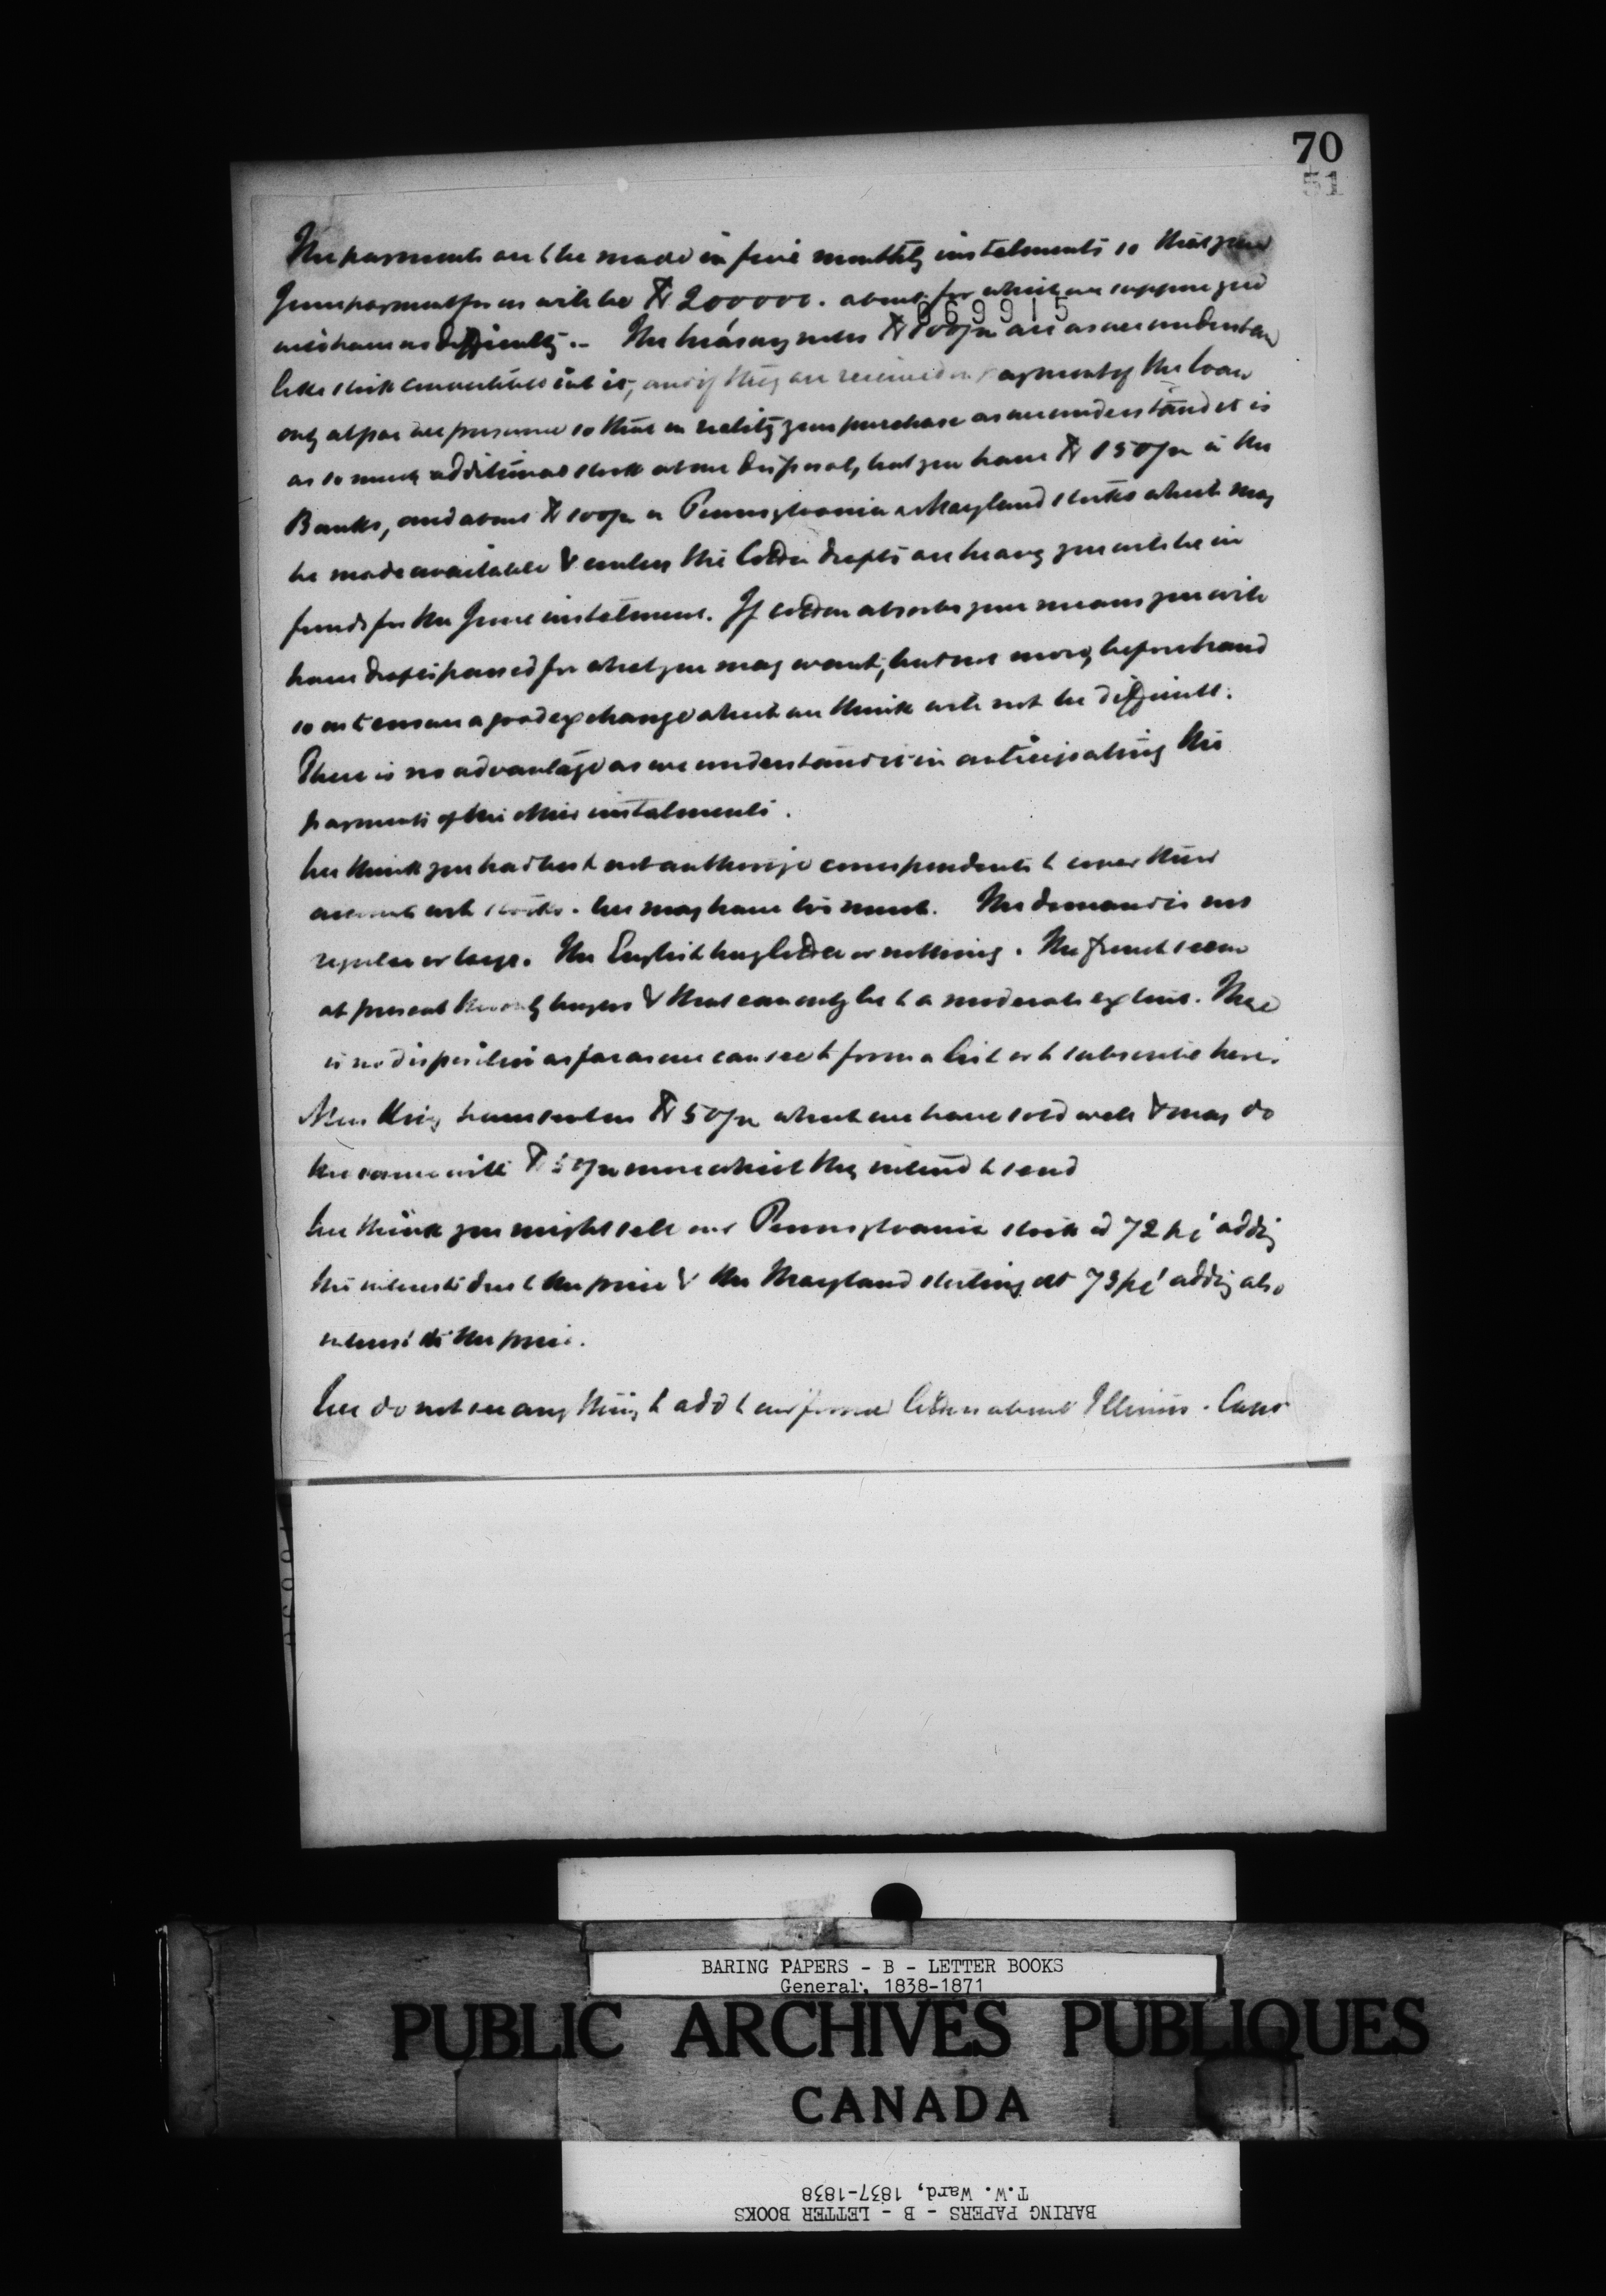 70
51
The payments are to be made in five monthly instalments so that your
June payment for us will be $ 200000. about for which we suppose you
069915
will have no difficulty.- The treasury notes $ 100/m are as we understand
like stock convertible into it, and if they are received in payment of the loan
only at par we presume so that in reality your purchase as we understand it is
as so much additional stock at our disposal, but you have $ 150/m in the
Banks, and about $ 100/m in Pennsylvania & Maryland stocks which may
be made available & unless the Cotton drafts are heavy you will be in
funds for the June instalment. If cotton absorbs your means you will
have drafts passed for what you may want, but not more, beforehand
so as to ensure a good exchange which we think will not be difficult.
There is no advantage as we understand it in anticipating the
payments of the other instalments.
We think you had best not authorize correspondents to cover their
accounts with stocks. We may have too much. The demand is not
regular or large. The English buy little or nothing. The french seem
at present the only buyers & that can only be to a moderate extent. There
is no disposition as far as we can see to form a list or to subscribe here.
Ness King have sent us $ 50/m which we have sold well & may do
the same with $ 50/m more which they intend to send
We think you might sell our Pennsylvania stock at 72 pc adding
the interest due to the price & the Maryland sterling at 73 pc adding also
interest to the price.
We do not see any thing to add to our former letters about Illinois. Canal
BARING PAPERS - B - LETTER BOOKS
General, 1838-1871
PUBLIC ARCHIVES PUBLIQUES
CANADA
BARING PAPERS - B - LETTER BOOKS
T.W. Ward, 1837-1838